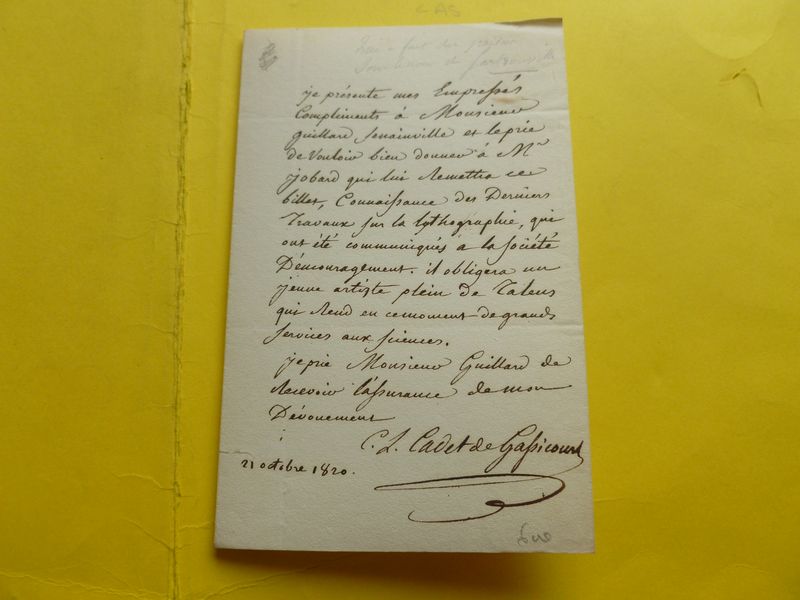 CAS
je présente mes Empressés
Compliments à Monsieur
guillard Senainville et le prie
de Vouloir bien donner à Mr
jobard qui lui Remettra ce
billet, Connaissance des Derniers
Travaux sur la lythographie, qui
ont été communiqués à la Société
D'émouragement. il obligera un
jeune artiste plein de Talens
qui Rend en ce moment de grands
Services aux sciences.
je prie Monsieur Guillard de
Recevoir l'assurance de mon
Dévouement
C. L. Cadet de Gassicourt
21 octobre 1820.